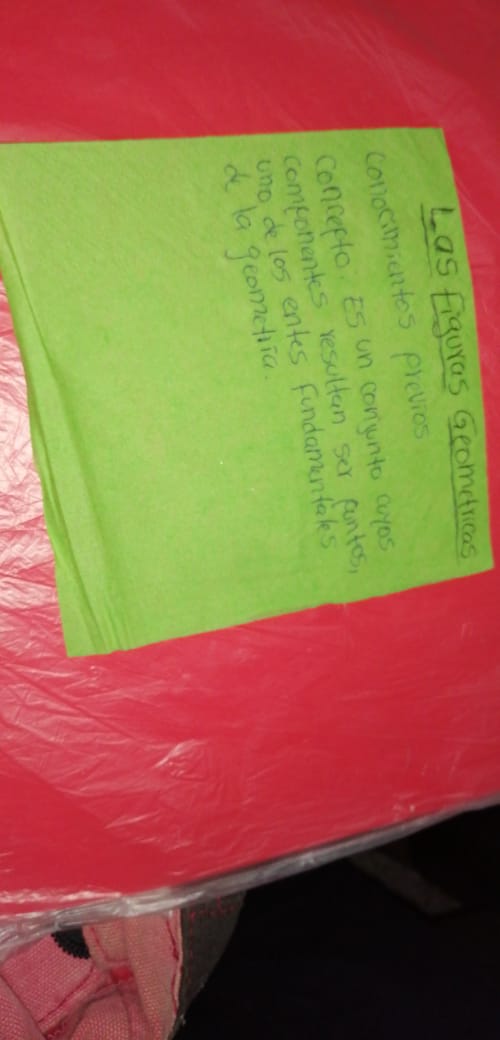 Las Figuras Geometricas
Conocimientos previos
Concepto. Es un conjunto cuyos
componentes resultan ser puntos,
uno de los entes fundamentales
de la geometría.